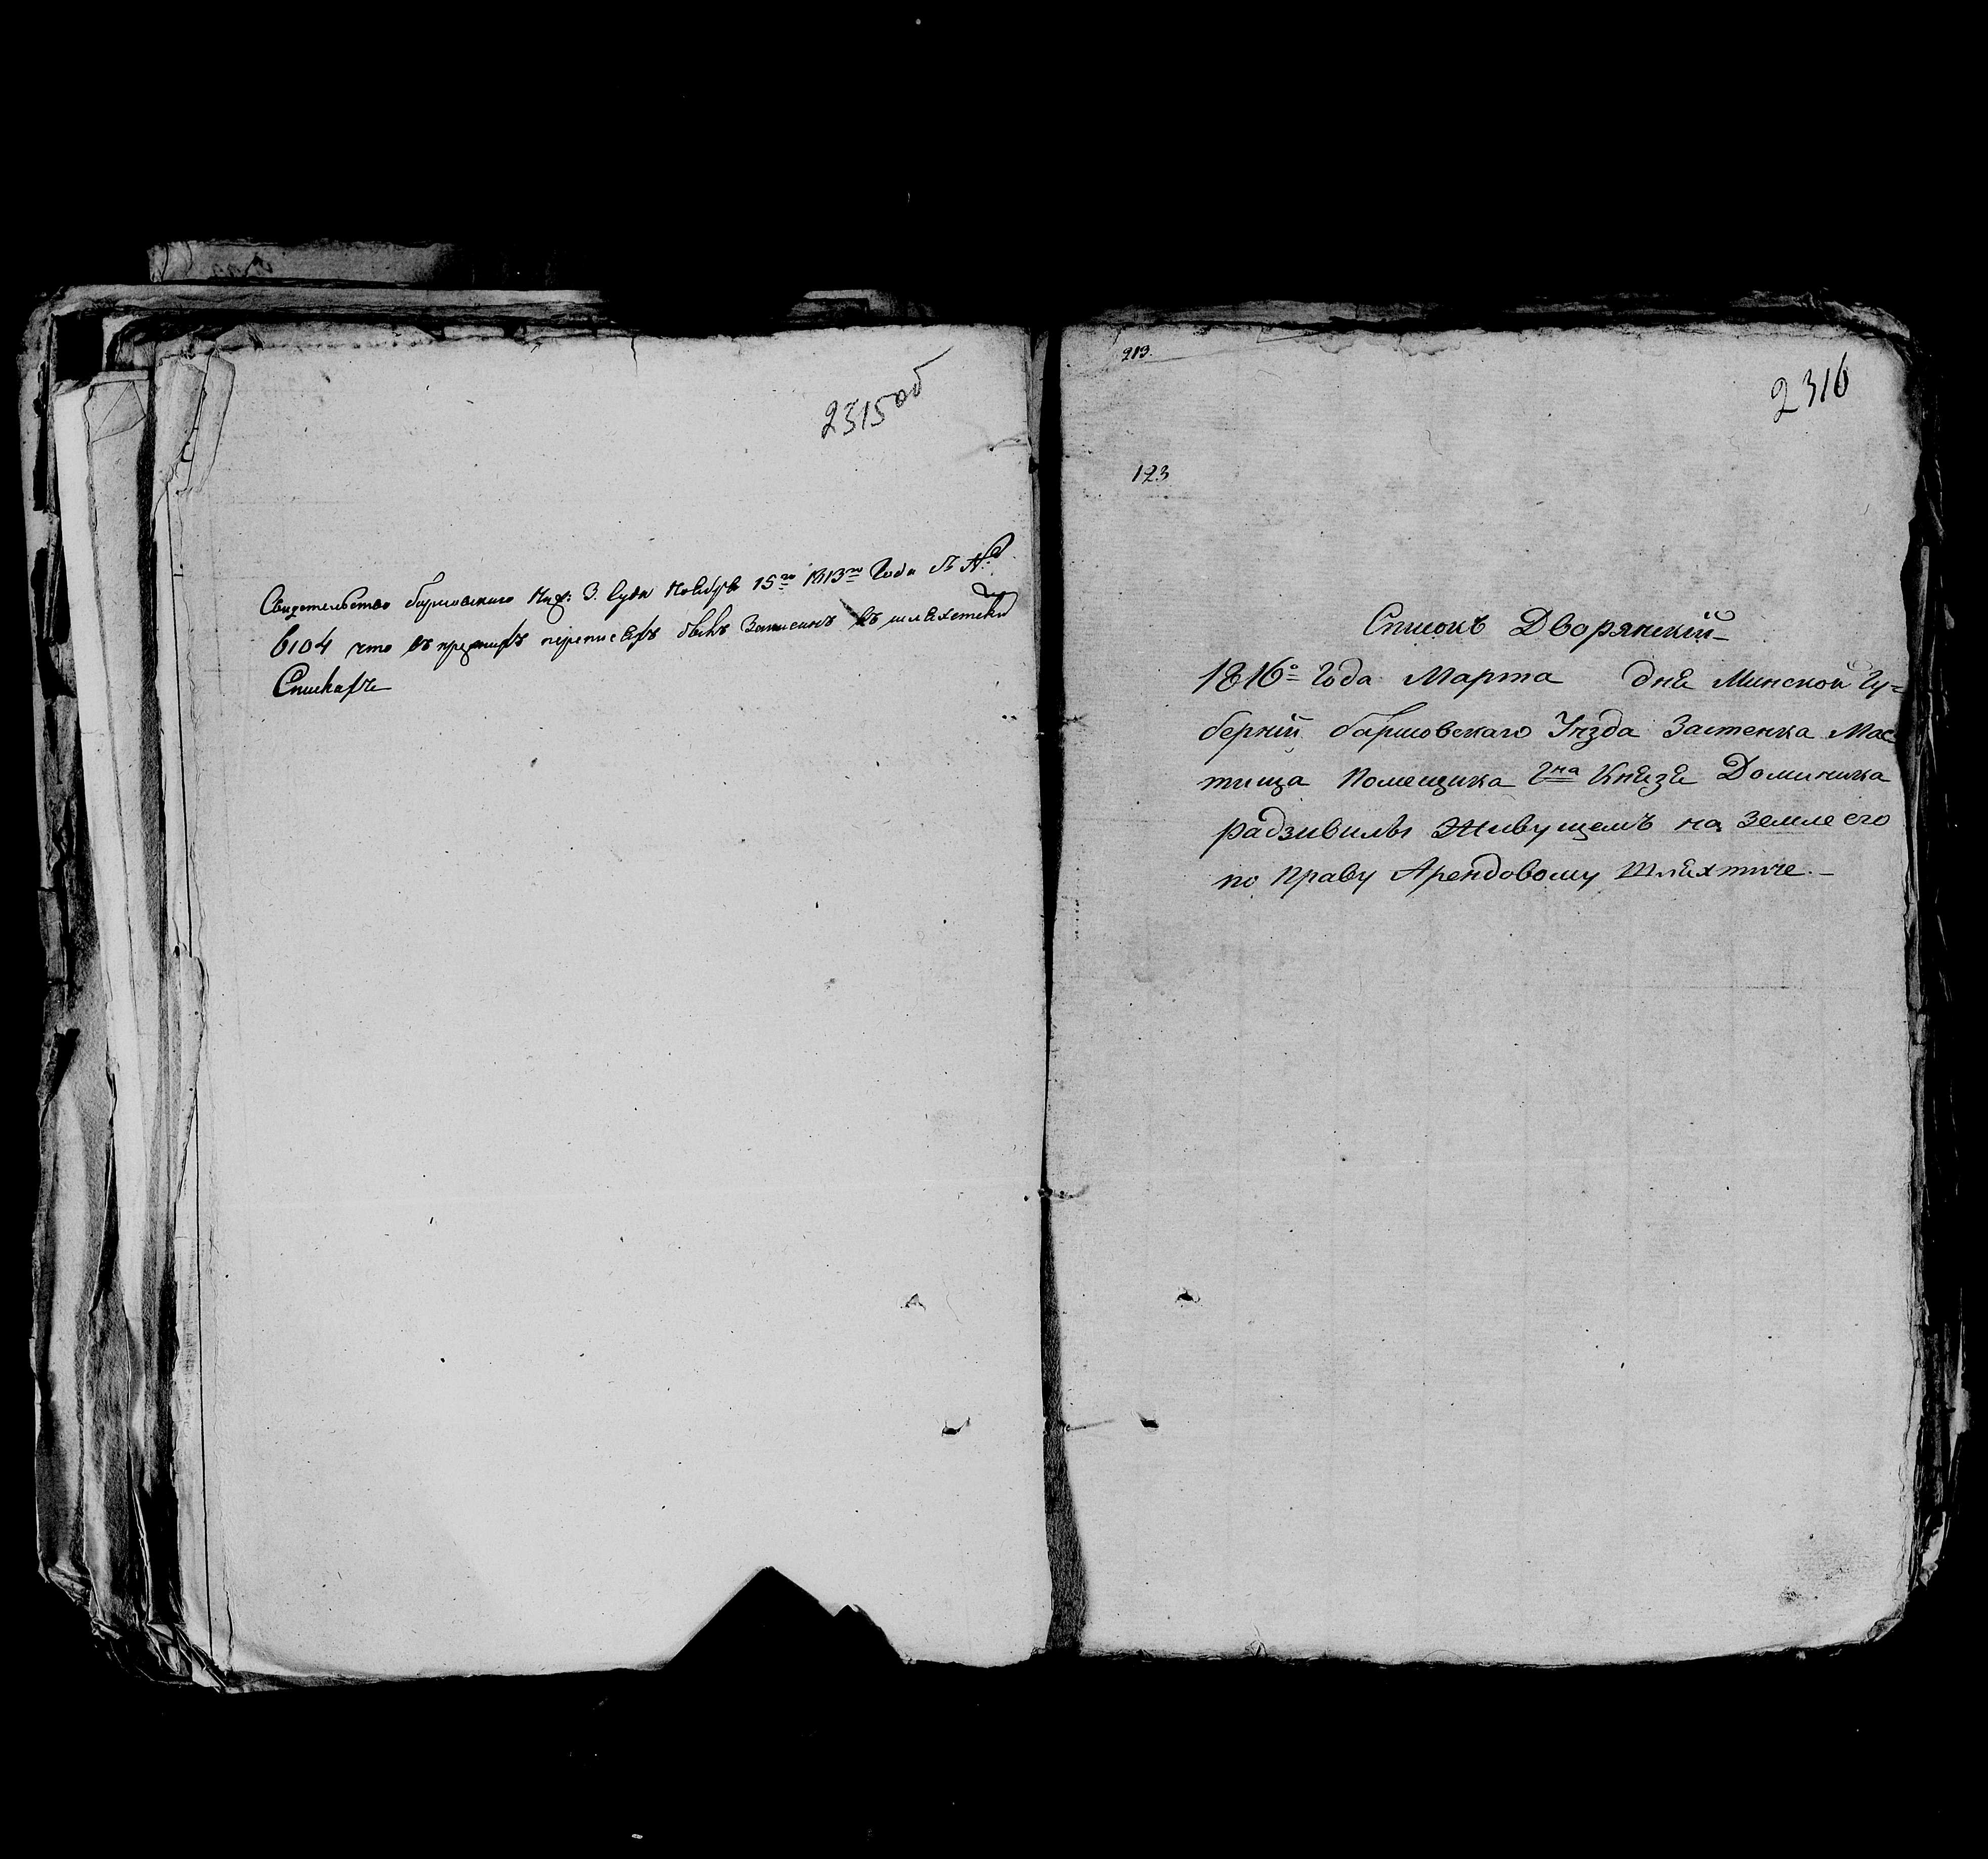 2315об
Свидетельство барисовскаго Ниж: З. Суда Ноября 15го 1813го Года за №м
6104 что въ прежнихъ переписяхъ былъ Записанъ въ шляхетскихъ
Спискахъ
213.
2316
123
Списокъ Дворянскій
1816о Года Марта дня Минской Гу=
берній барисовскаго Уезда Застенка Мас
тища Помещика Гна Князя Доминика
радзивилы Живущемъ на Земле его
по Праву Арендовому Шляхтиче.